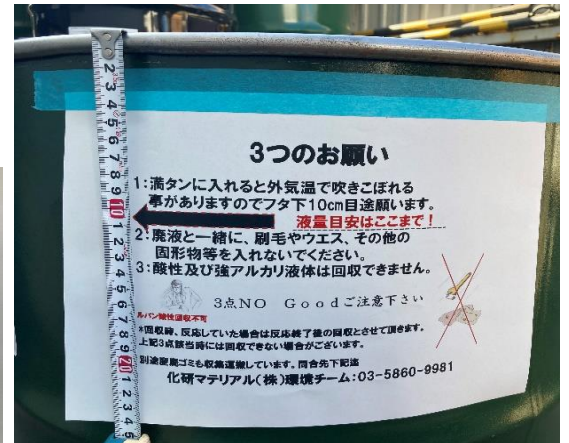 3つのお願い
1:満タンに入れると外気温で吹きこぼれる
事がありますのでフタ下10cm目途願います。
液量目安はここまで!
2:廃液と一緒に、刷毛やウエス、その他の
固形物等を入れないでください。
3:酸性及び強アルカリ液体は回収できません。
3点NO Goodご注意下さい
ルパン酸性回収不可
*回収時、反応していた場合は反応終了後の回収とさせて頂きます。
上記3点該当時には回収できない場合がございます。
別途廃棄ゴミも収集運搬しています。問合先下記迄
化研マテリアル(株)環境チーム:03-5860-9981
2 3 4 5 6 7 8 9 10 1 2 3 4 5 6 7 8 9 20 1 2 3 4 5